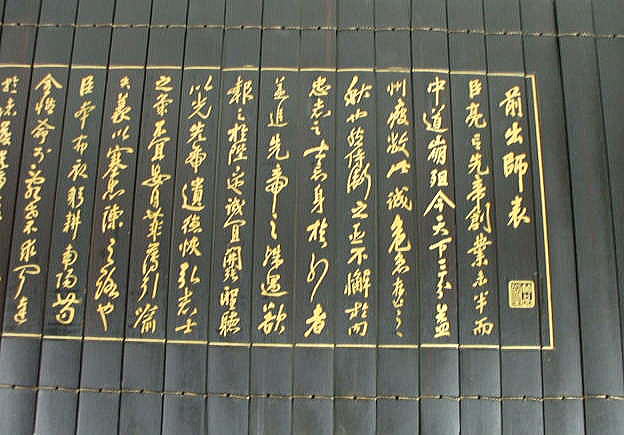 前出師表
臣亮言先帝創業未半而
中道崩殂今天下三分益
州疲敝此誠危急存亡之
秋也然侍衛之臣不懈於內
忠志之士忘身於外者
蓋追先帝之殊遇欲
報之於陛下誠宜開張聖聽
以光先帝遺德恢弘志士
之氣不宜妄自菲薄引喻
失義以塞忠諫之路也
臣本布衣躬耕南陽苟
全性命於亂世不求聞達